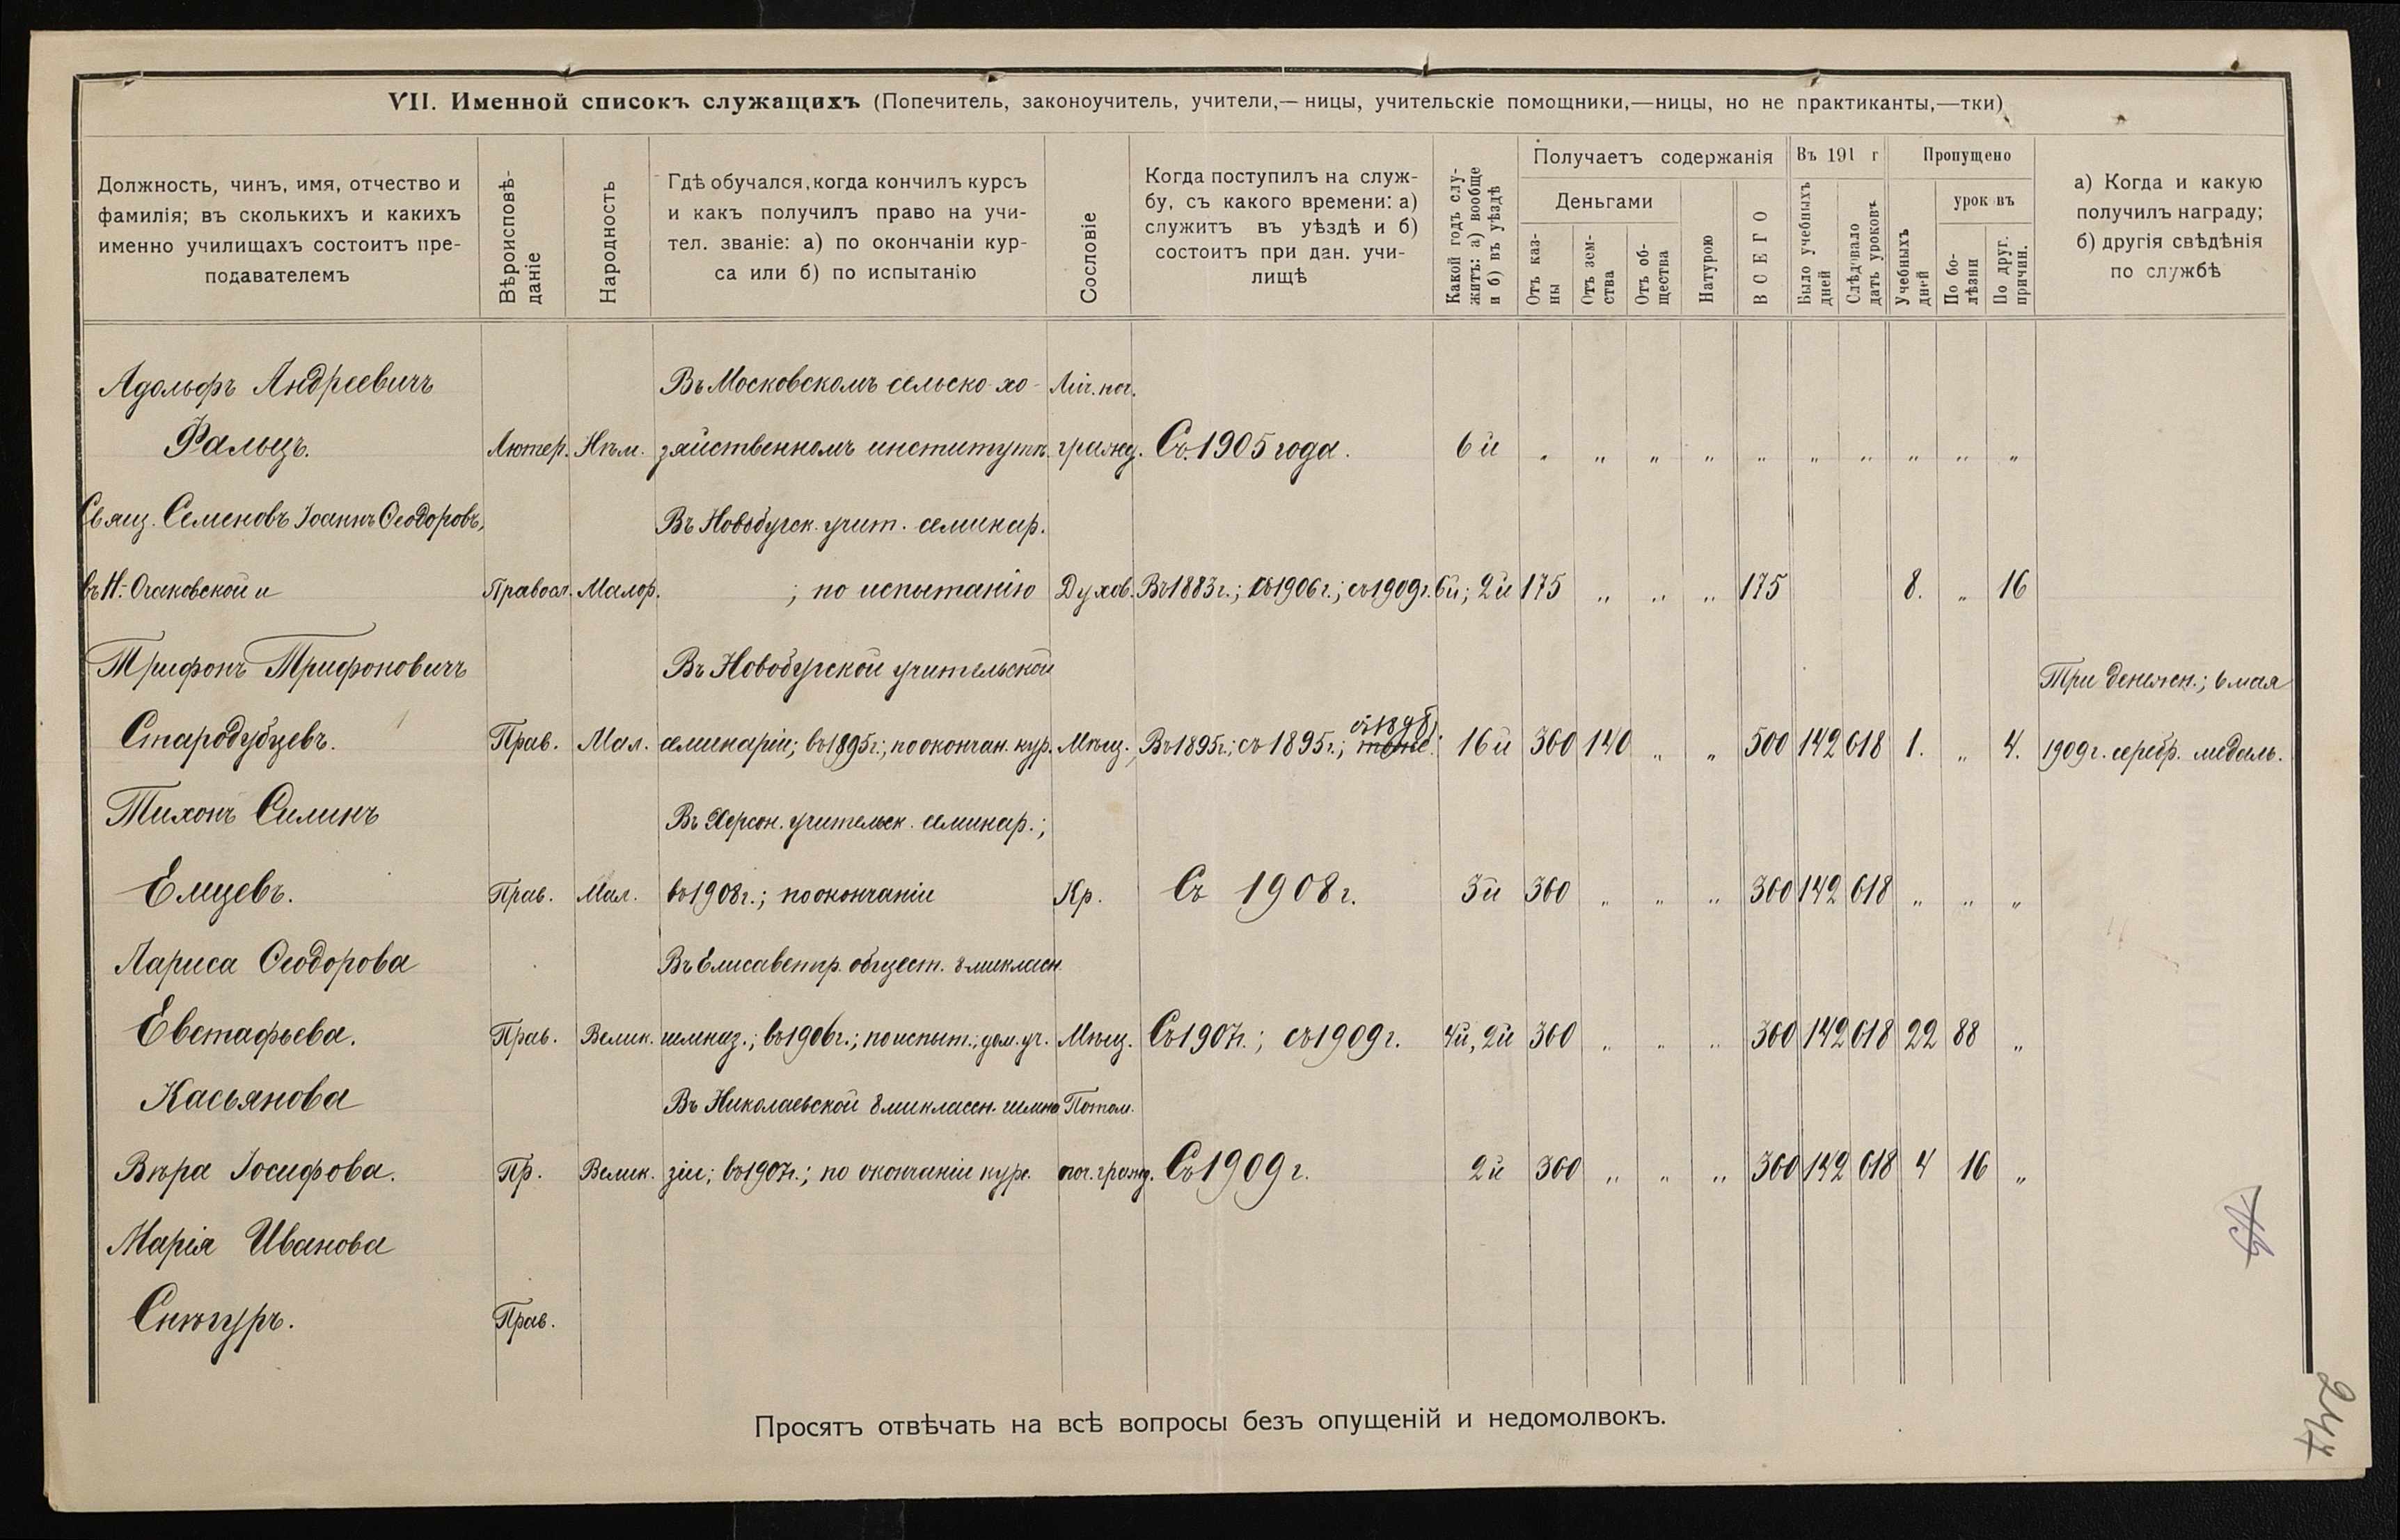 VII. Именной списокъ служащихъ (Попечитель, законоучитель, учители,—ницы, учительскіе помощники,—ницы, но не практиканты,—тки)
Должность, чинъ, имя, отчество и
фамилія; въ сколькихъ и какихъ
именно училищахъ состоитъ пре-
подавателемъ
Вѣроисповѣ-
даніе
Народность
Гдѣ обучался, когда кончилъ курсъ
и какъ получилъ право на учи-
тел. званіе: а) по окончаніи кур-
са или б) по испытанію
Сословіе
Когда поступилъ на служ-
бу, съ какого времени: а)
служитъ въ уѣздѣ и б)
состоитъ при дан. учи-
лищѣ
Какой годъ слу-
житъ: а) вообще
и б) въ уѣздѣ
Получаетъ содержанія
Деньгами
Отъ каз-
ны
Отъ зем-
ства
Отъ об-
щества
Натурою
ВСЕГО
Въ 191 г
Было учебныхъ
дней
Слѣдовало
дать уроковъ
Пропущено
Учебныхъ
дней
урок въ
По бо-
лѣзни
По друг.
причин.
а) Когда и какую
получилъ награду;
б) другія свѣдѣнія
по службѣ
Адольфъ Андреевичъ Въ Московскомъ сельско-хо- Лич. поч.
Фальцъ. Лютер. Нѣм. зяйственномъ институтѣ гражд. Съ 1905 года. 6й „ „ „ „ „ „ „ „ „ „
Свящ. Семеновъ Іоаннъ Ѳеодоровъ, Въ Новобугск. учит. семинар.
въ Н.-Очаковской и Правосл. Малор. ; по испытанію Духов. Въ 1883г.; съ 1906г.; съ 1909г. 6й; 2й 175 „ „ „ 175 8. „ 16
Трифонъ Трифоновичъ Въ Новобугской учительской Три денежн.; 6 мая
Стародубцевъ. Прав. Мал. семинаріи; въ 1895г.; по окончан. кур. Мѣщ. Въ 1895г.; съ 1895г.; 16й 360 140 „ „ 500 142 618 1. „ 4. 1909г. серебр. медаль.
Тихонъ Силинъ Въ Херсон. учительск. семинар.;
Емцевъ. Прав. Мал. въ 1908г.; по окончаніи Кр. Съ 1908г. 3й 360 „ „ „ 360 142 618 „ „ „
Лариса Ѳеодорова Въ Елисаветгр. общест. 8микласн.
Евстафьева. Прав. Велик. гимназ.; въ 1906г.; по испыт.; дом. уч. Мѣщ. Съ 1907г.; съ 1909г. 4й, 2й 360 „ „ „ 360 142 618 22 88 „
Касьянова Въ Николаевской 8миклассн. гимна Потом.
Вѣра Іосифова. Пр. Велик. зіи; въ 1907г.; по окончаніи курс. поч. гражд. Съ 1909г. 2й 360 „ „ „ 360 142 618 4 16 „
Марія Иванова
Снѣгуръ. Прав.
Просятъ отвѣчать на всѣ вопросы безъ опущеній и недомолвокъ.
247